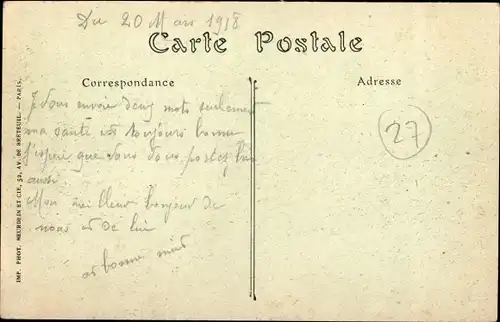 Du 20 Mars 1918
Carte Postale
Correspondance
Adresse
Je vous envoie deux mots seulement
ma santé est toujours bonne
J'espère que vous vous portez bien
aussi
Mon meilleur bonjour de
nous et de lui
et bonne nuit
27
IMP. PHOT. NEURDEIN ET CIE, 52, AV. DE BRETEUIL. — PARIS.